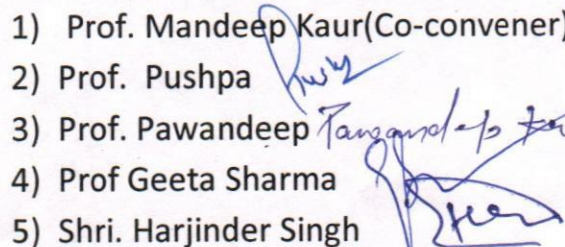 1) Prof. Mandeep Kaur(Co-convener)
2) Prof. Pushpa
3) Prof. Pawandeep
4) Prof Geeta Sharma
5) Shri. Harjinder Singh